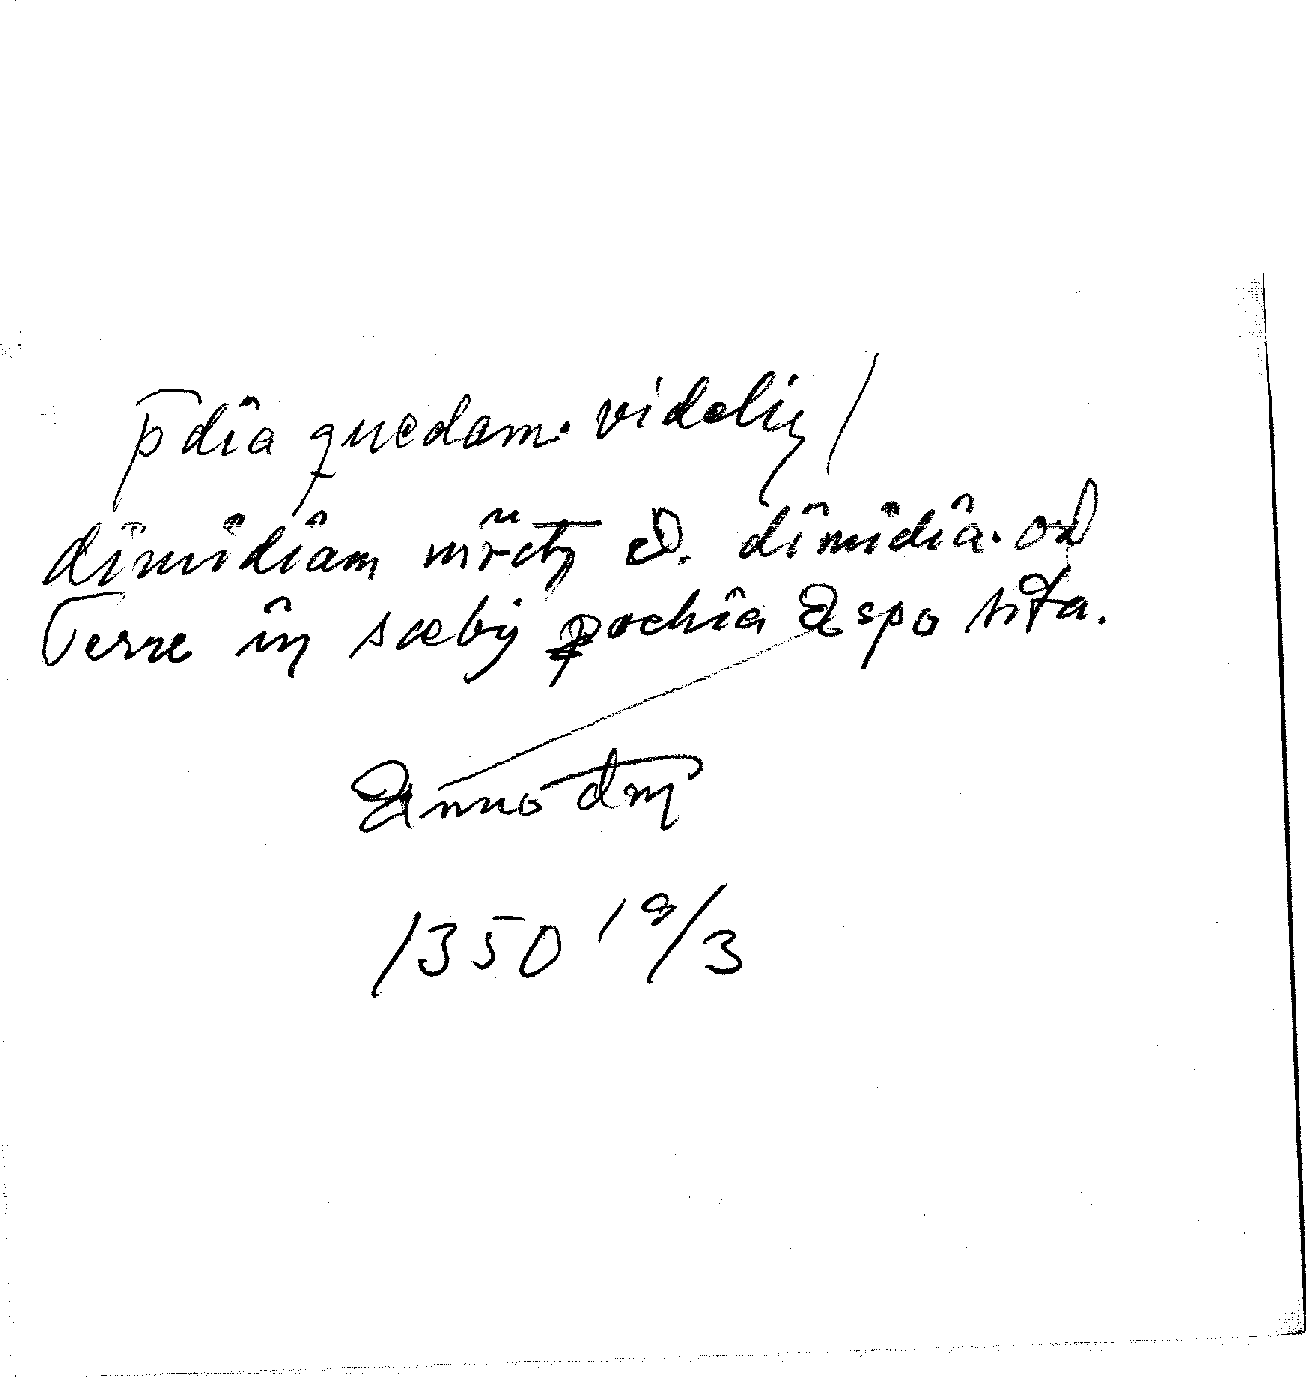 p̄dîa quedam. videliʒ /
dimidiam mr̃ctʒ &. dimidia. od
Terre în sæbÿ pochîa Aspo sita.
Anno dnj
1350 19/3